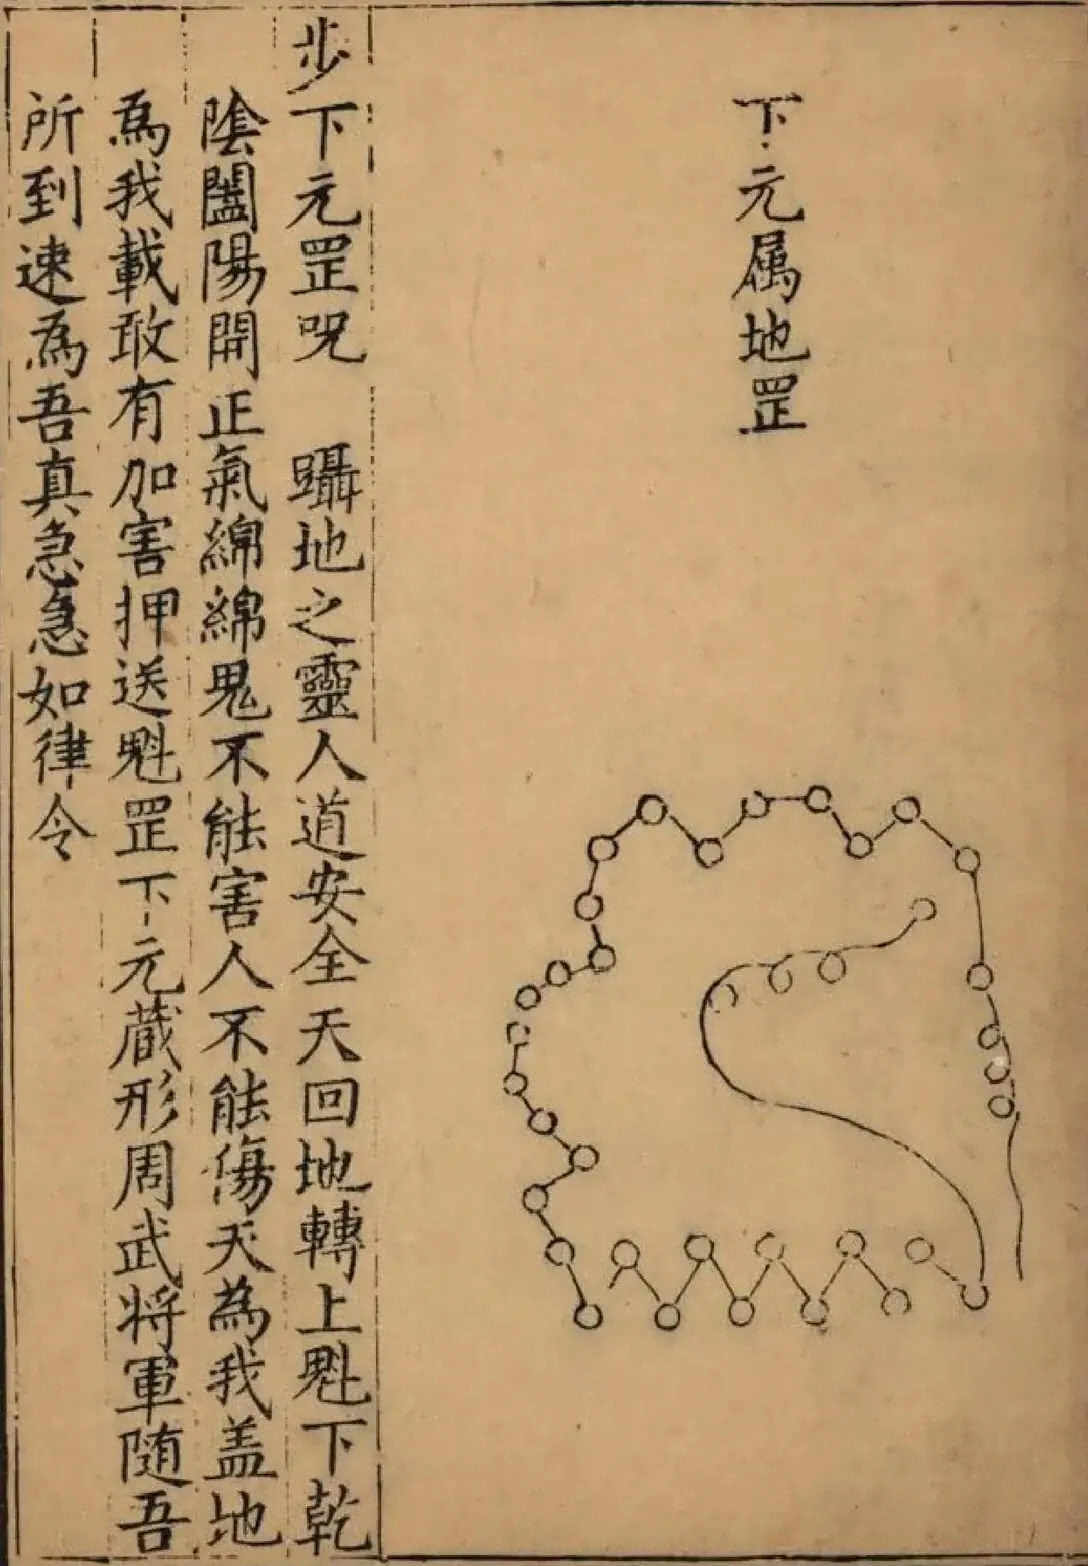 下元属地罡
步下元罡呪　躡地之靈人道安全天回地轉上魁下乾
陰闔陽開正氣綿綿鬼不能害人不能傷天為我盖地
為我載敢有加害押送魁罡下元蔵形周武将軍随吾
所到速為吾真急急如律令